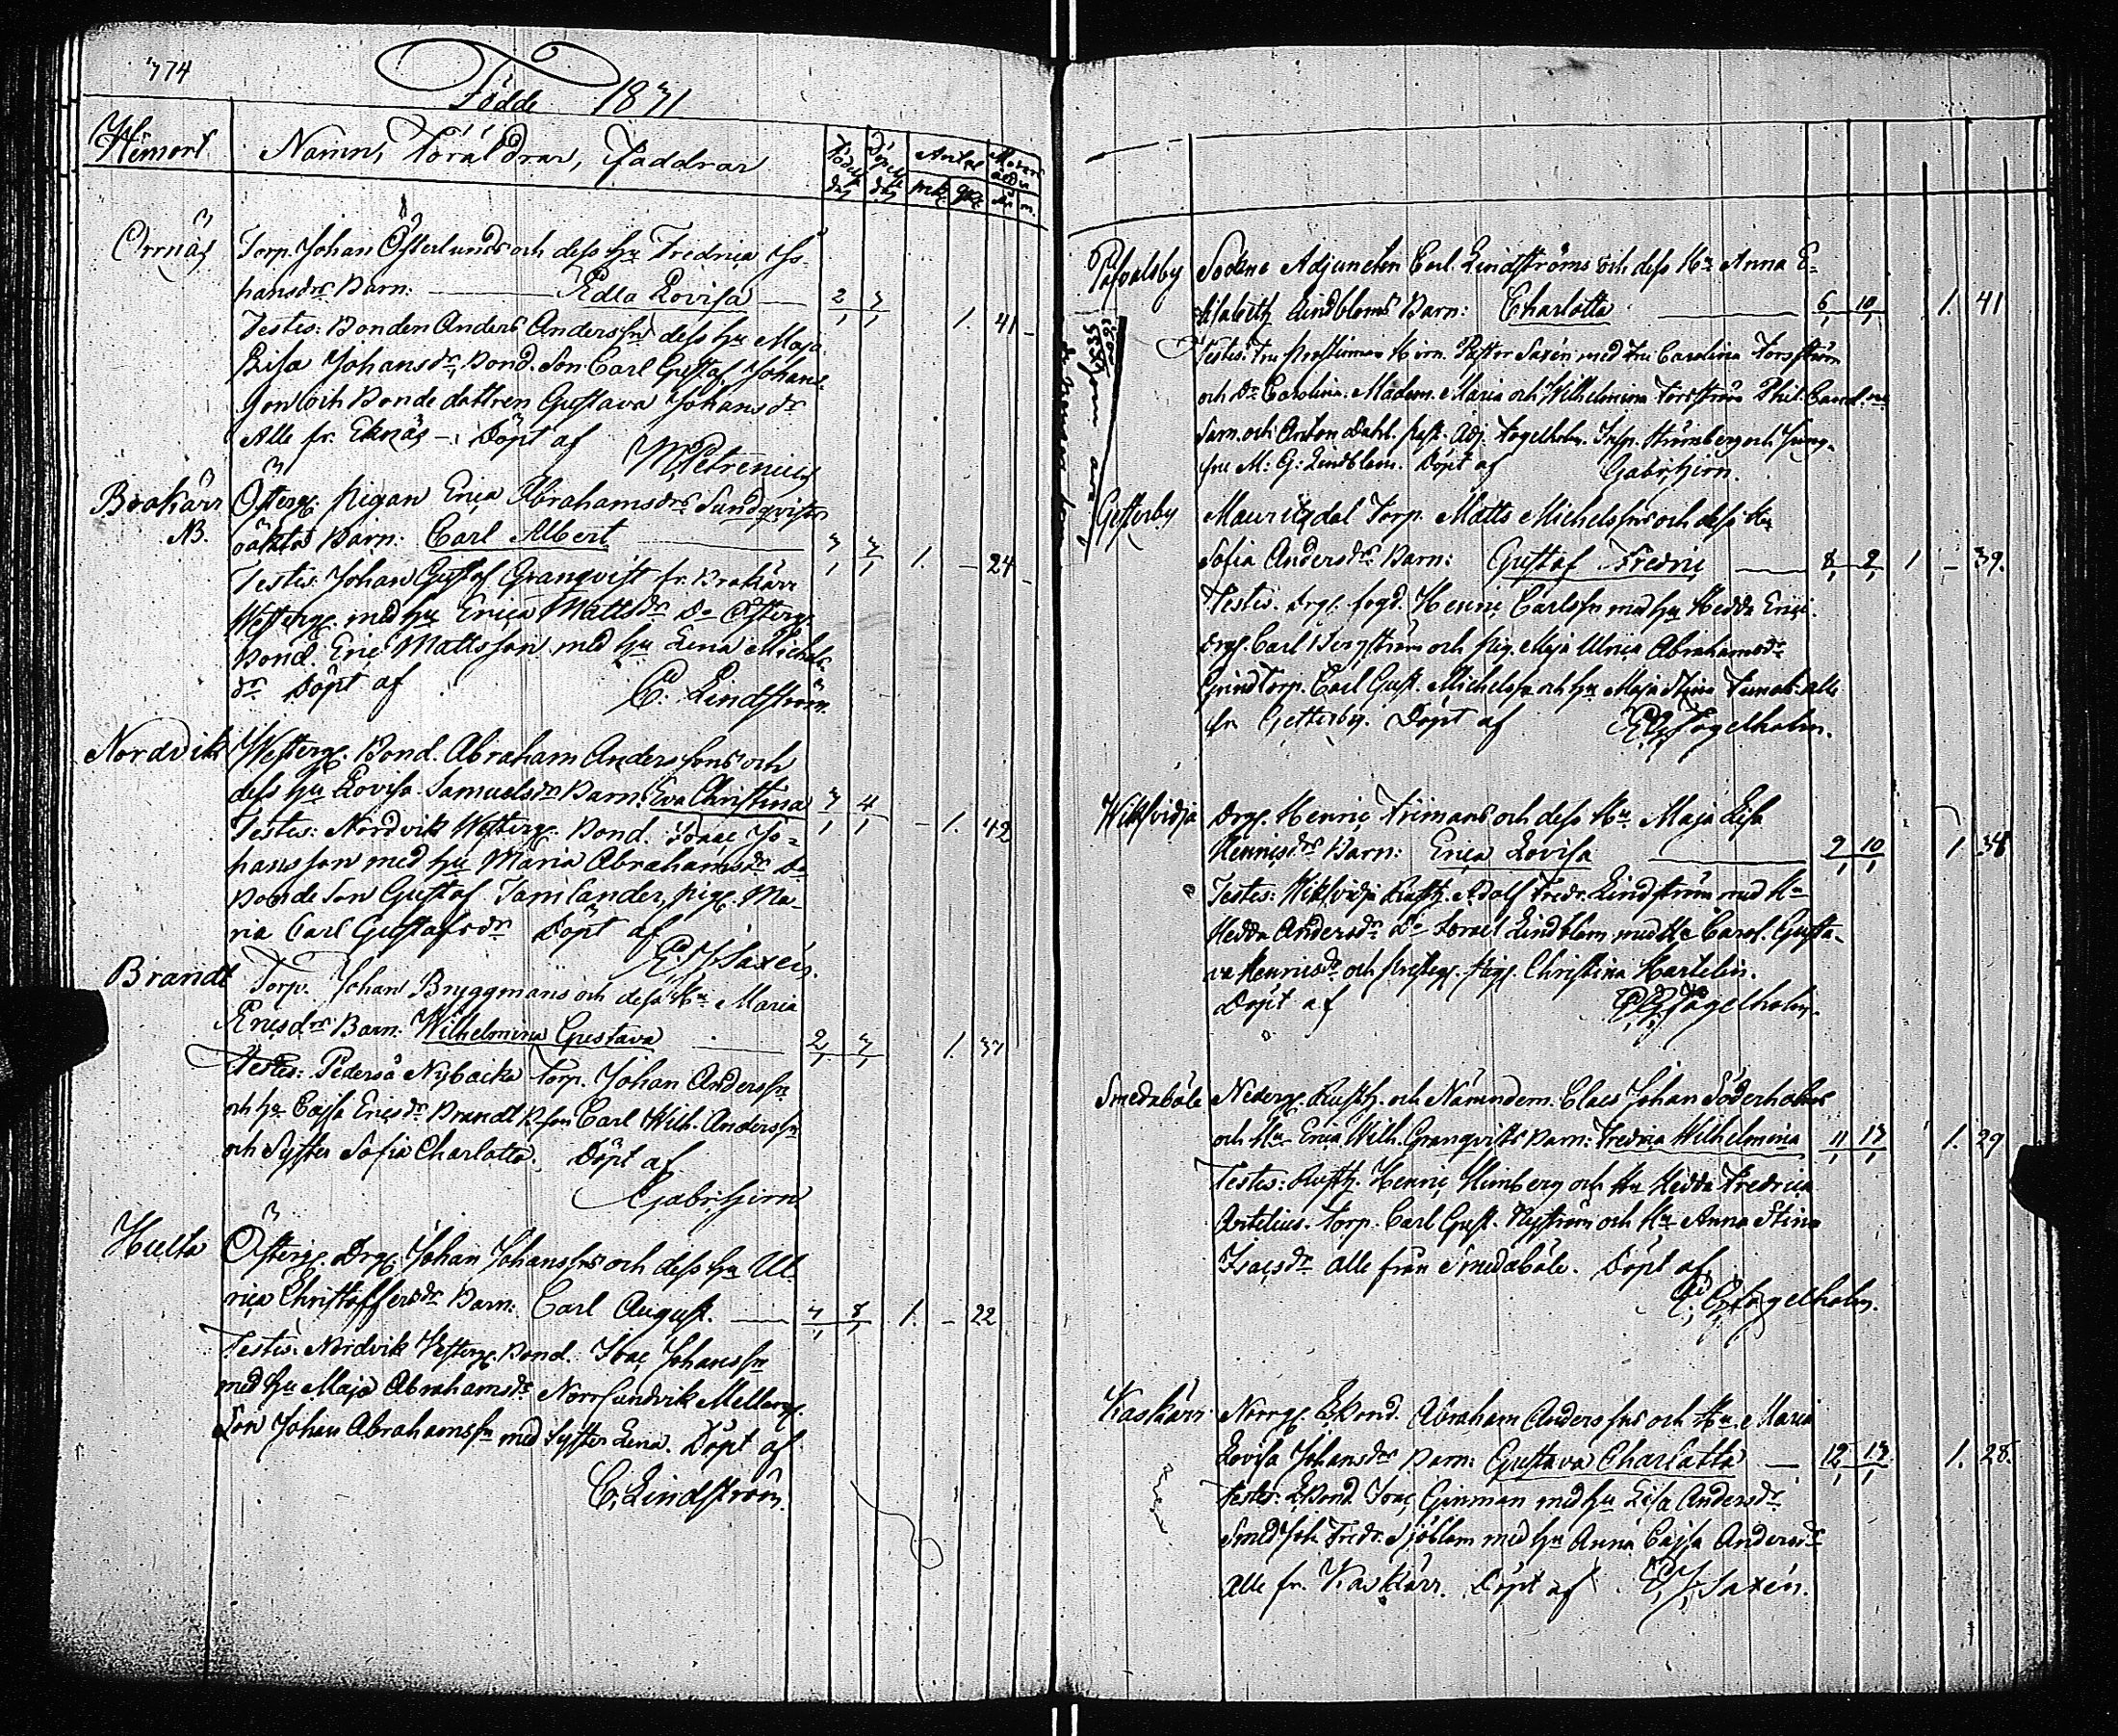 774
Födde 1831
Hemort
Namn, Föräldrar, Faddrar
Födelse dag
Döpelse dag
Antal
mk. qk.
Moders ålder
år m.
Orrnäs
Torp. Johan Österlunds och dess hu Fredrica Jo-
hansdrs Barn: Edla Lovisa 2/1 3/1 1. 41
Testes: Bonden Anders Anderssn dess hu Maja
Lisa Johansdr, Bond. Son Carl Gustaf Johans-
son och Bonde dottren Gustava Johansdr
Alle fr. Eknäs -. Döpt af
Petrenius
Brokärr
NB.
Österg. Pigan Erica Abrahamsdrs Sundqvists
oäkta Barn: Carl Albert 3/1 3/1 1. - 24 -
Testes: Johan Gustaf Granqvist fr. Brokärr
Westerg. med hu Erica Mattsdr Do Österg.
Bond. Eric Mattsson med hu Lena Michels-
dr Döpt af
C. Lindström
Nordvik
Westerg. Bond. Abraham Anderssons och
dess hu Lovisa Samuelsdrs Barn: Eva Christina 3/1 4/1 - 1. 42
Testes: Nordvik Westerg. Bond. Isaac Jo-
hansson med hu Maria Abrahamsdr Do
Bonde Son Gustaf Tamlander, pig. Ma-
ria Carl Gustafsdr Döpt af
E. J. Saxén.
Brandt
Torp. Johan Bryggmans och dess Hu Maria
Ericsdrs Barn: Wilhelmina Gustava 2/1 3/1 1. 37
Testes: Pederså Nybacka Torp. Johan Anderssn
och hu Cajsa Ericsdr Brandt B. son Carl Wilh. Anderssn
och Syster Sofia Charlotta. Döpt af
Gabr. Hirn
Hulta
Österg. Drg. Johan Johanssns och dess hu Ul-
rica Christoffersdrs Barn: Carl August. 7/1 8/1 1. - 22
Testes: Nordvik Westerg. Bond. Isac Johanssn
med hu Maja Abrahamsdr Norrsundvik Mellerg.
Son Johan Abrahamssn med Syster Lena. Döpt af
C. Lindström.
Sockne Adjuncten Carl Lindströms och dess Hu Anna E-
lisabeth Lindbloms Barn: Charlotta 6/1 10/1 1. 41
Testes: Fru Prostinnan Hirn. Pastor Saxén med Fru Carolina Forsström
och Dr Carolina. Madem. Maria och Wilhelmina Forsström Phil. Cand.
Sam. och Anton Dahl. Past. Adj. Fogelholm. Insp. Strömberg och Jung-
fru M: G: Lindblom. Döpt af
Gabr. Hirn.
Gesterby
Mauritzdal Torp. Matts Michelssns och dess Hu
Sofia Andersdrs Barn: Gustaf Fredric 8/1 9/1 1 - 39.
Testes. Drg. fogd. Henric Carlssn med hu Hedda Erici.
Drg. Carl Bergström och pig. Maja Ulrica Abrahamsdr
Grindtorp. Carl Gust. Michelssn och hu Maja Stina Tomasdr alle
fr. Gesterby. Döpt af
E. G. Fogelholm.
Wiksvidja
Drg. Henric Frimans och dess Hu Maja Lisa
Henricsdrs Barn: Erica Lovisa 9/1 10/1 1. 34
Testes: Wiksvidja Rusth. Adolf Fredr. Lindström med Hu
Hedda Andersdr Do Israel Lindblom med Hu Carol. Gusta-
va Henricsdr och Presteg. Pig. Christina Hartelin.
Döpt af
E. G. Fogelholm.
Smedaböle
Nederg. Rusth. och Nämndem. Claes Johan Söderholms
och Hu Erica Wilh. Granqvists Barn: Fredrica Wilhelmina 11/1 13/1 1. 29
Testes: Rusth. Henric Himberg och Hu Hedda Fredrica
Artelius. Torp. Carl Gust. Nyström och Hu Anna Stina
Isacsdr Alle från Smedaböle. Döpt af
E. G. Fogelholm.
Kaskärr
Norrg. Bond. Abraham Anderssns och Hu Maria
Lovisa Johansdrs Barn: Gustava Charlotta 12/1 13/1 1. 28.
Testes: Bond. Isac Ginman med hu Lisa Andersdr
Smed Joh. Fredr. Sjöblom med hu Anna Cajsa Andersdr
Alle fr. Kaskärr. Döpt af E. J. Saxén.